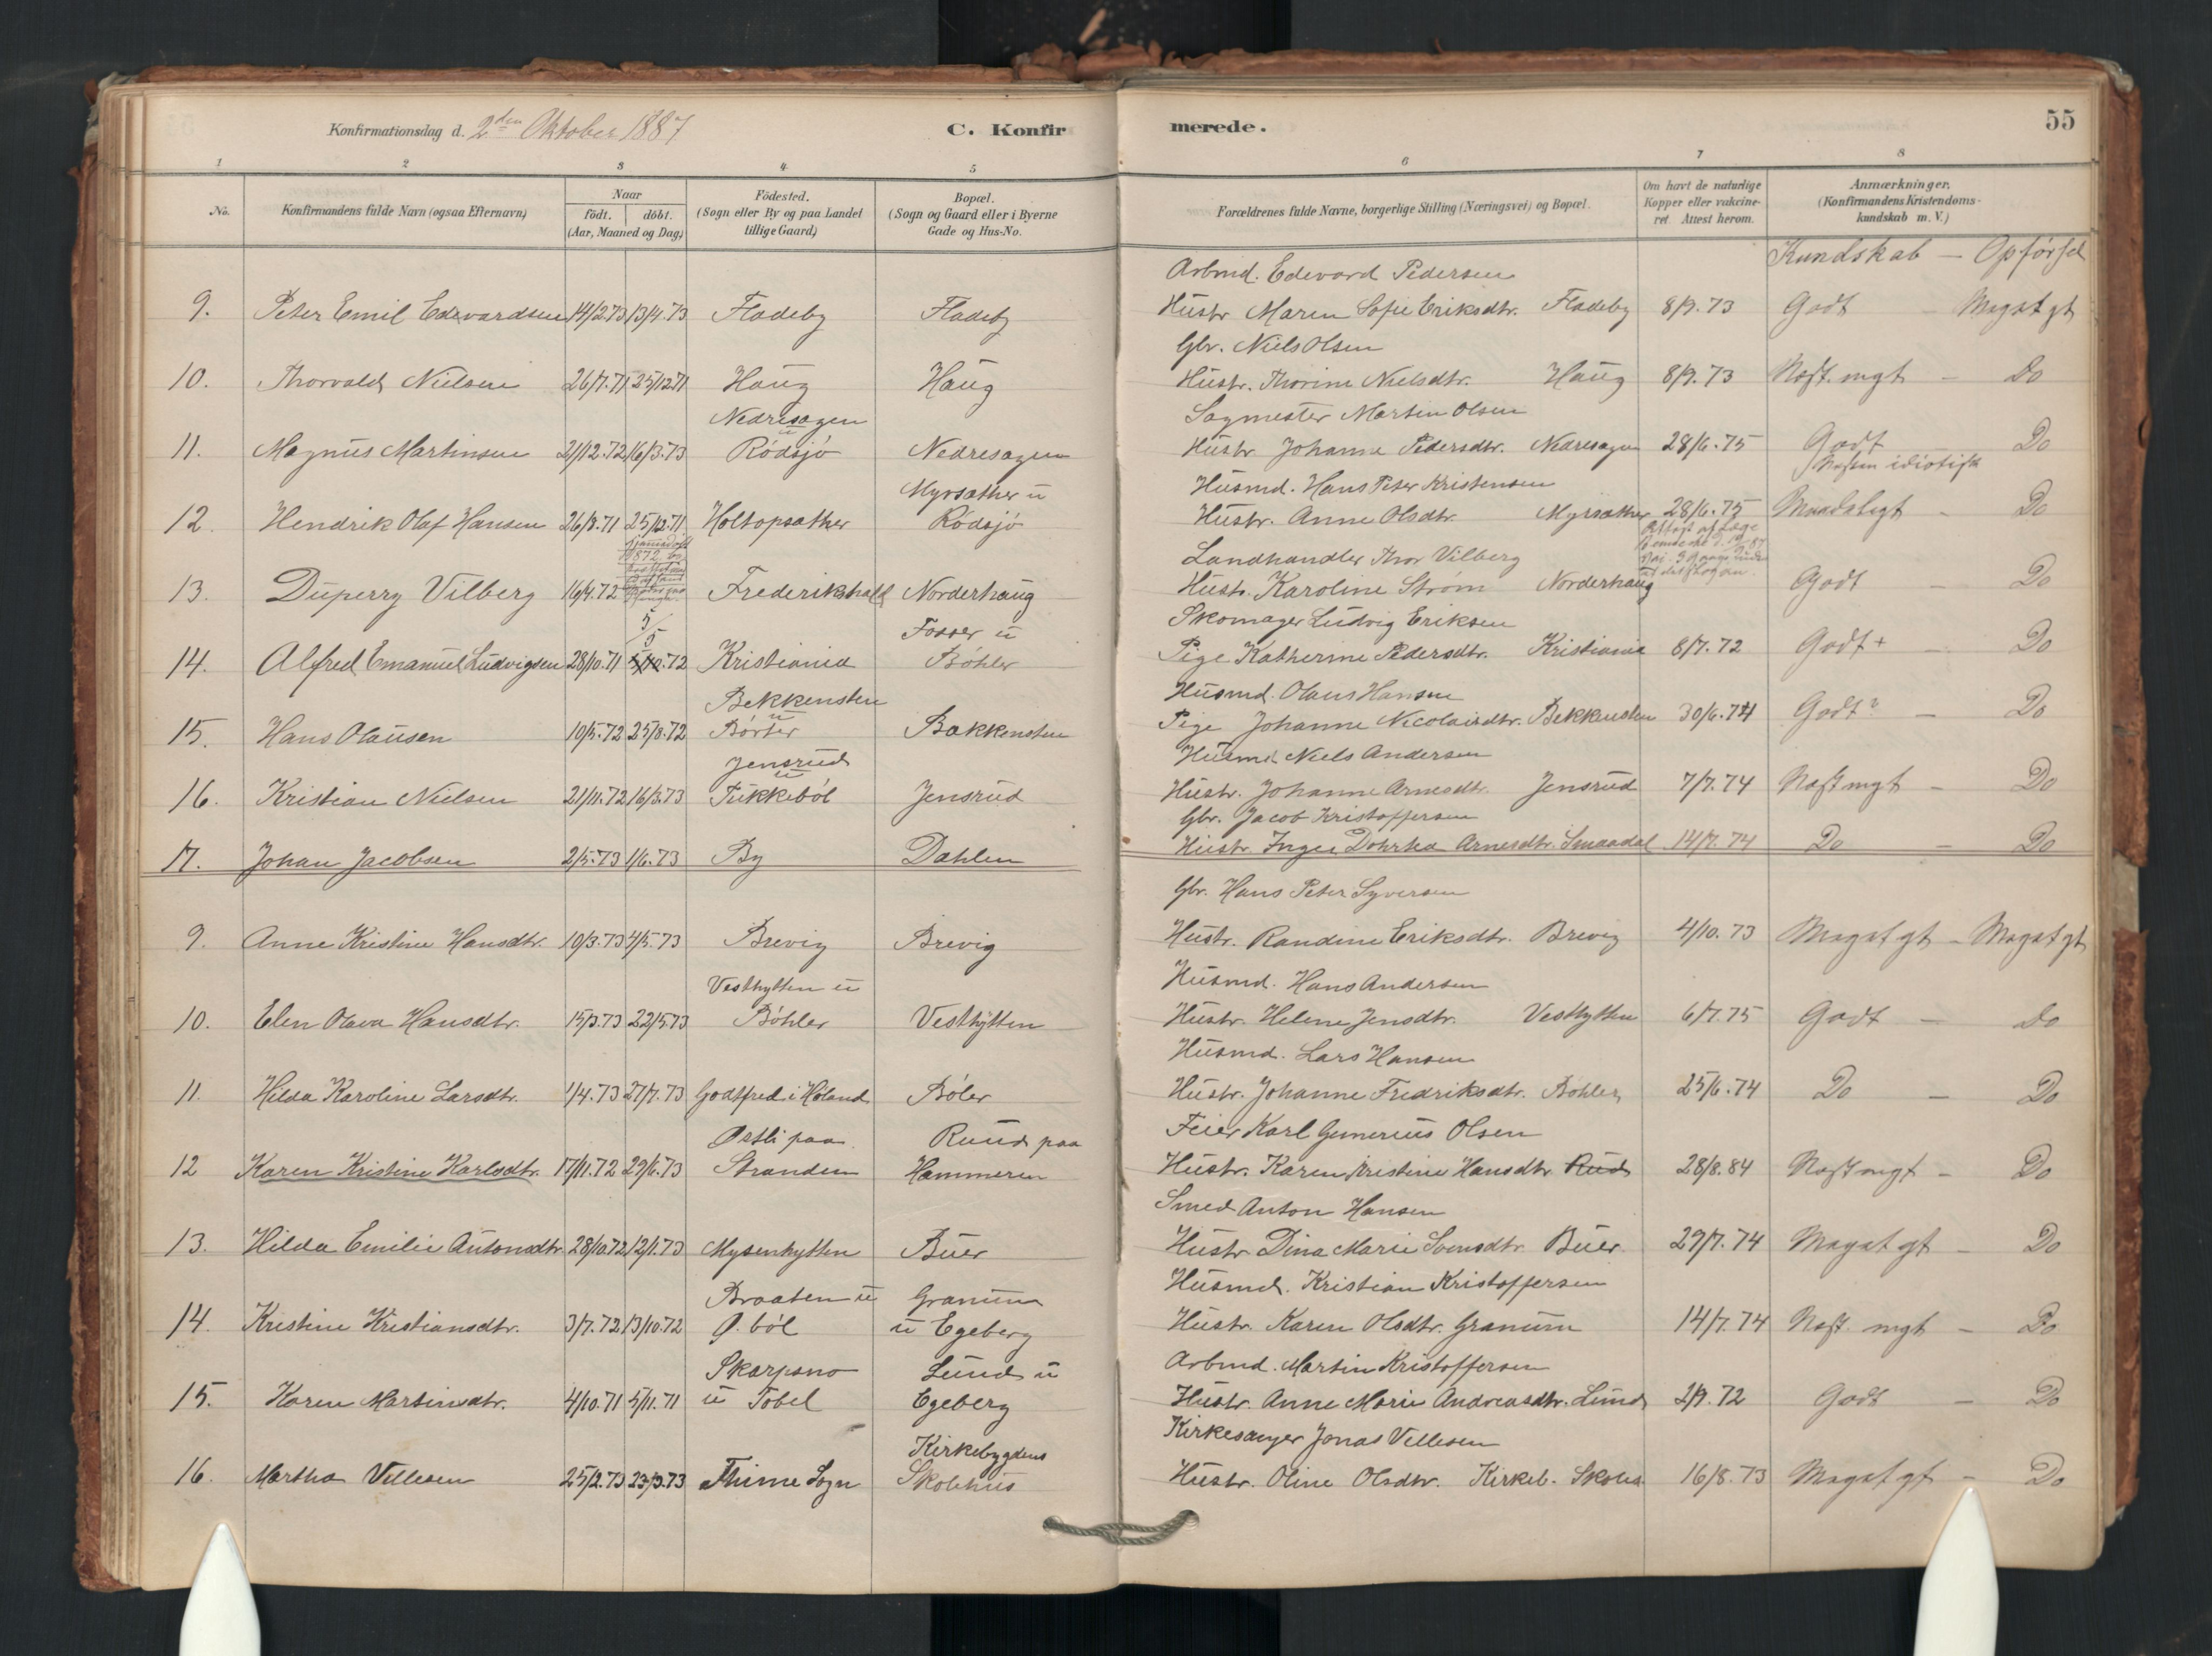 Konfirmationsdag d. 2den Oktober 1887
C. Konfirmerede.
55
1 2 3 4 5 6 7 8
No.
Konfirmandens fulde Navn (ogsaa Efternavn)
Naar
födt. döbt.
(Aar, Maaned og Dag)
Födested.
(Sogn eller By og paa Landet
tillige Gaard)
Bopæl.
(Sogn og Gaard eller i Byerne
Gade og Hus-No.
Forældrenes fulde Navne, borgerlige Stilling (Næringsvei) og Bopæl.
Om havt de naturlige
Kopper eller vakcine-
ret Attest herom.
Anmærkninger.
(Konfirmandens Kristendoms-
kundskab m. V.)
Kundskab — Opførsel
Arbmd. Edevard Pedersen
9. Peter Emil Edevardsen 14/2.73 13/4.73 Fladeby Fladeby Hustr Maren Sofie Eriksdtr. Fladeby 8/9.73 Godt – Megetgt
Gbr. Niels Olsen
10. Thorvald Nielsen 26/7.71 25/12.71 Haug Haug Hustr. Thorine Nielsdtr. Haug 8/9.73 Næst. mgt – Do
Nedresagen Sagmester Martin Olsen
11. Magnus Martinsen 21/12.72 16/3.73 u Rødsjø Nedresagen Hustr Johanne Pedersdtr. Nedresagen 28/6.75 Godt Do
Myrsæther u Husmd. Hans Peter Kristensen Næsten idiotisk
12. Hendrik Olaf Hansen 26/8.71 25/12.71 Holtopsæther Rødsjø Hustr. Anne Olsdtr. Myrsæther 28/6.75 Maadeligt – Do
Landhandler Thor Vilberg
13. Duperry Vilberg 16/4.72 Frederikshald Norderhaug Hustr. Karoline Strøm Norderhaug Godt – Do
5/5 Fosser u Skomager Ludvig Eriksen
14. Alfred Emanuel Ludvigsen 28/10.71 .72 Kristiania Bøhler Pige Katherine Pedersdtr. Kristiania 8/7.72 Godt+ – Do
Bekkensten Husmd. Olaus Hansen
15. Hans Olausen 10/5.72 25/8.72 u Børter Bakkensten Pige Johanne Nicolaisdtr. Bekkensten 30/6.74 Godt? – Do
Jensrud Husmd Niels Andersen
16. Kristian Nielsen 21/11.72 16/3.73 u Tukkebøl Jensrud Hustr. Johanne Arnesdtr. Jensrud 7/7.74 Næst mgt – Do
Gbr. Jacob Kristoffersen
17. Johan Jacobsen 2/5.73 1/6.73 By Dahlen Hustr. Inger Dorthea Arnesdtr. Smaadal 14/7.74 Do – Do
Gbr. Hans Peter Syversen
9. Anne Kristine Hansdtr. 10/3.73 4/5.73 Brevig Brevig Hustr. Randine Eriksdtr. Brevig 4/10.73 Megetgt – Megetgt
Vesthytten u Husmd. Hans Andersen
10. Elen Olava Hansdtr. 15/3.73 22/5.73 Bøhler Vesthytten Hustr. Helene Jensdtr. Vesthytten 6/7.75 Godt – Do
Husmd. Lars Hansen
11. Hilda Karoline Larsdtr. 1/4.73 27/7.73 Godtfred i Høland Bøler Hustr. Johanne Fredriksdtr. Bøhler 25/6.74 Do – Do
Østli paa Ruud paa Feier Karl Gunerius Olsen
12 Karen Kristine Karlsdtr. 17/11.72 29/6.73 Stranden Hammeren Hustr. Karen Kristine Hansdtr. Rud 28/8.84 Næst mgt – Do
Smed Anton Hansen
13. Hilda Emilie Antonsdtr. 28/10.72 12/1.73 Mysenhytten Buer Hustr Dina Marie Svensdtr. Buer 29/7.74 Megetgt – Do
Braaten u Granum Husmd. Kristian Kristoffersen
14. Kristine Kristiansdtr. 3/7.72 13/10.72 Ø. bøl u Egeberg Hustr. Karen Olsdtr. Granum 14/7.74 Næst. mgt – Do
Skarpsno Lund u Arbmd. Martin Kristoffersen
15. Karen Martinsdtr. 4/10.71 5/11.71 u Tobel Egeberg Hustr. Anne Marie Andreasdtr. Lund 2/9.72 Godt – Do
Kirkebygdens Kirkesanger Jonas Vellesen
16. Martha Vellesen 25/2.73 23/3.73 Thime Sogn Skolehus Hustr. Oline Olsdtr. Kirkeb. Skoleh 16/8.73 Megetgt – Do